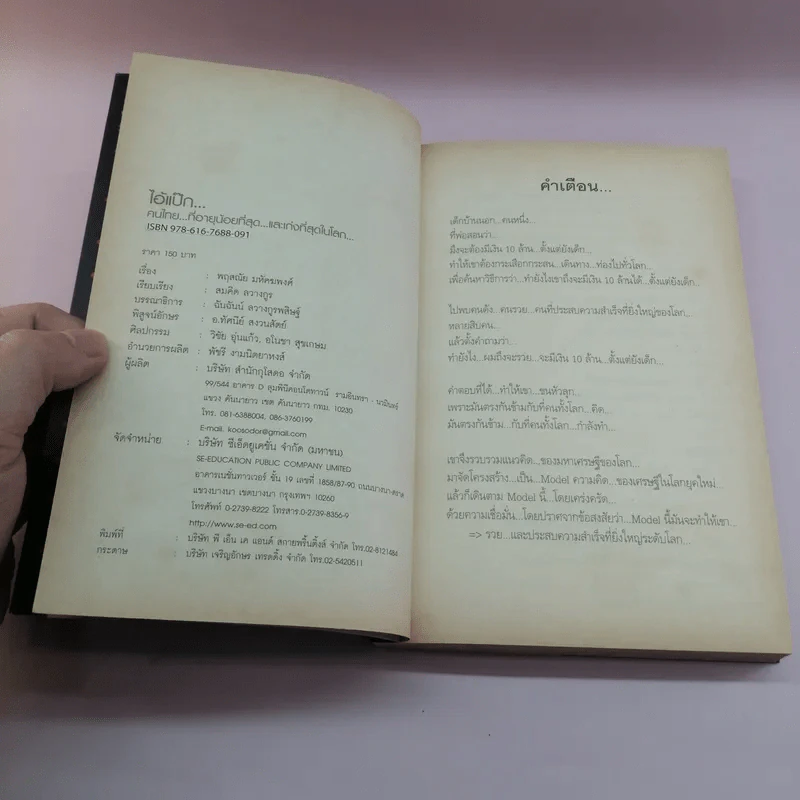 ไอ้แป๊ก...
คนไทย...ที่อายุน้อยที่สุด...และเก่งที่สุดในโลก...
ISBN 978-616-7688-091
ราคา 150 บาท
เรื่อง : พฤสณัย มหัคฆพงศ์
เรียบเรียง : สมคิด ลวางกูร
บรรณาธิการ : ฉันฉันน์ ลวางกูรพสิษฐ์
พิสูจน์อักษร : อ.ทัศนีย์ สงวนสัตย์
ศิลปกรรม : วิชัย อุ่นแก้ว, อโนชา สุขเกษม
อำนวยการผลิต : พัชรี งามนิตยาหงส์
ผู้ผลิต : บริษัท สำนักกุโสดอ จำกัด
99/544 อาคาร D ลุมพินีคอนโดทาวน์ รามอินทรา - นวมินทร์
แขวง คันนายาว เขต คันนายาว กทม. 10230
โทร. 081-6388004, 086-3760199
E-mail. koosodor@gmail.com
จัดจำหน่าย : บริษัท ซีเอ็ดยูเคชั่น จำกัด (มหาชน)
SE-EDUCATION PUBLIC COMPANY LIMITED
อาคารเนชั่นทาวเวอร์ ชั้น 19 เลขที่ 1858/87-90 ถนนบางนา-ตราด
แขวงบางนา เขตบางนา กรุงเทพฯ 10260
โทรศัพท์ 0-2739-8222 โทรสาร.0-2739-8356-9
http://www.se-ed.com
พิมพ์ที่ : บริษัท พี เอ็น เค แอนด์ สกายพริ้นติ้งส์ จำกัด โทร.02-8121484
กระดาษ : บริษัท เจริญอักษร เทรดดิ้ง จำกัด โทร.02-5420511
คำเตือน...
เด็กบ้านนอก...คนหนึ่ง...
ที่พ่อสอนว่า...
มึงจะต้องมีเงิน 10 ล้าน...ตั้งแต่ยังเด็ก...
ทำให้เขาต้องกระเสือกกระสน...เดินทาง...ท่องไปทั่วโลก...
เพื่อค้นหาวิธีการว่า...ทำยังไงเขาถึงจะมีเงิน 10 ล้านได้...ตั้งแต่ยังเด็ก...
ไปพบคนดัง...คนรวย...คนที่ประสบความสำเร็จที่ยิ่งใหญ่ของโลก...
หลายสิบคน...
แล้วตั้งคำถามว่า...
ทำยังไง...ผมถึงจะรวย...จะมีเงิน 10 ล้าน...ตั้งแต่ยังเด็ก...
คำตอบที่ได้...ทำให้เขา...ขนหัวลุก...
เพราะมันตรงกันข้ามกับที่คนทั้งโลก...คิด...
มันตรงกันข้าม...กับที่คนทั้งโลก...กำลังทำ...
เขาจึงรวบรวมแนวคิด...ของมหาเศรษฐีของโลก...
มาจัดโครงสร้าง...เป็น...Model ความคิด...ของเศรษฐีในโลกยุคใหม่...
แล้วก็เดินตาม Model นี้...โดยเคร่งครัด...
ด้วยความเชื่อมั่น...โดยปราศจากข้อสงสัยว่า...Model นี้มันจะทำให้เขา...
=> รวย...และประสบความสำเร็จที่ยิ่งใหญ่ระดับโลก...